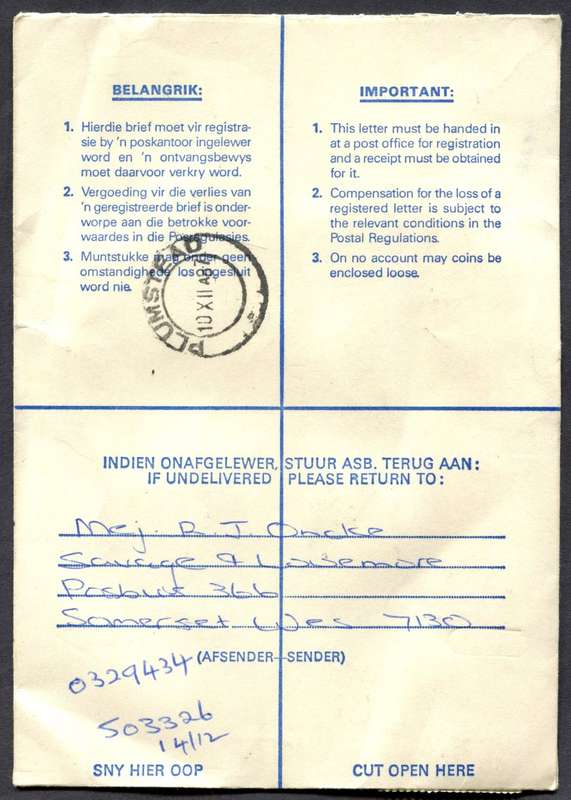 BELANGRIK:
1. Hierdie brief moet vir registra-
sie by 'n poskantoor ingelewer
word en 'n ontvangsbewys
moet daarvoor verkry word.
2. Vergoeding vir die verlies van
'n geregistreerde brief is onder-
worpe aan die betrokke voor-
waardes in die Posregulasies.
3. Muntstukke mag onder geen
omstandighede los ingesluit
word nie.
IMPORTANT:
1. This letter must be handed in
at a post office for registration
and a receipt must be obtained
for it.
2. Compensation for the loss of a
registered letter is subject to
the relevant conditions in the
Postal Regulations.
3. On no account may coins be
enclosed loose.
PLUMSTEAD
10 XII
INDIEN ONAFGELEWER, STUUR ASB. TERUG AAN:
IF UNDELIVERED PLEASE RETURN TO:
Mej. R J
Savage & Lovemore
Posbus 366
Somerset Wes 7130
(AFSENDER–SENDER)
0329434
503326
14/12
SNY HIER OOP
CUT OPEN HERE